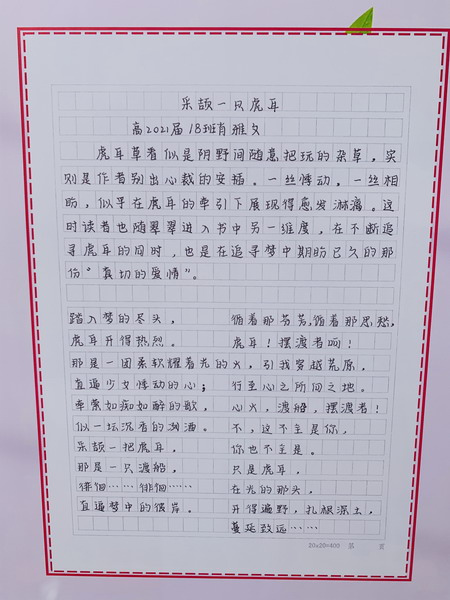 采颉一只虎耳
高2021届18班肖雅文
虎耳草看似是阴野间随意把玩的杂草,实
则是作者别出心裁的安插。一丝悸动,一丝相
盼,似乎在虎耳的牵引下展现得愈发淋漓。这
时读者也随翠翠进入书中另一维度,在不断追
寻虎耳的同时,也是在追寻梦中期盼已久的那
份“真切的爱情”。
踏入梦的尽头,
虎耳开得热烈。
那是一团柔软耀着光的火,
直逼少女悸动的心;
牵萦如痴如醉的歌,
似一坛沉香的冽酒。
采颉一把虎耳,
那是一只渡船,
徘徊……徘徊……
直逼梦中的彼岸。
循着那芳芳,循着那思愁,
虎耳!摆渡者啊!
引我穿越荒原,
行至心之所向之地。
心火,渡船,摆渡者!
不,这不主是你,
你也不主是。
只是虎耳,
在光的那头,
开得遍野,扎根深土,
蔓延致远……
20×20=400 第 页